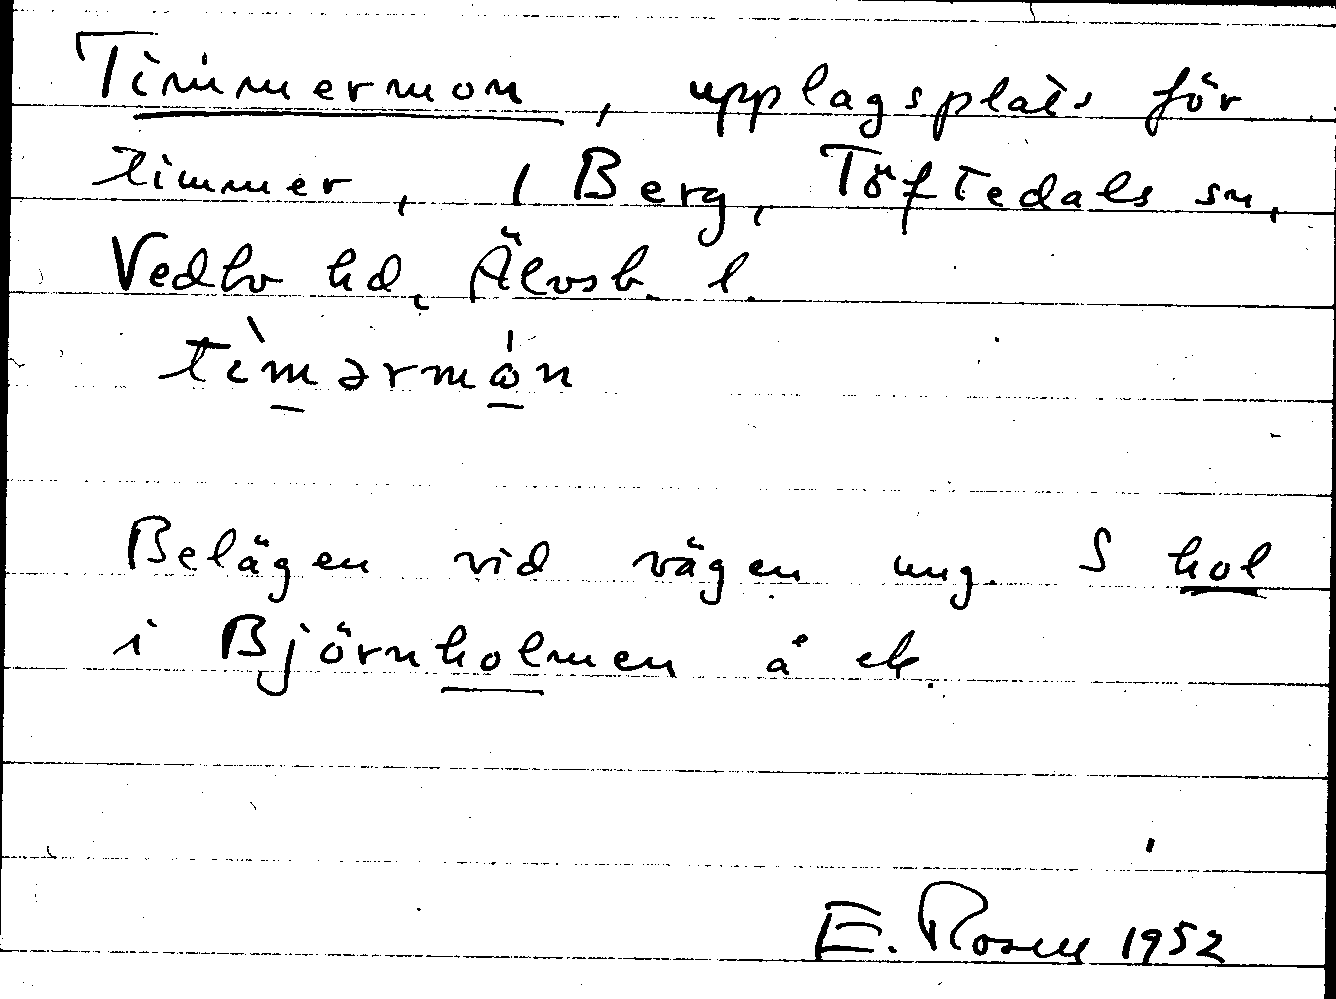 Timmermon, upplagsplats för
timmer, i Berg, Töftedals sn,
Vedbo hd, Älvsb. l.
tìmərmȯ́n
Belägen vid vägen ung. S hol
i Björnholmen å ek.
E. Rosell 1952